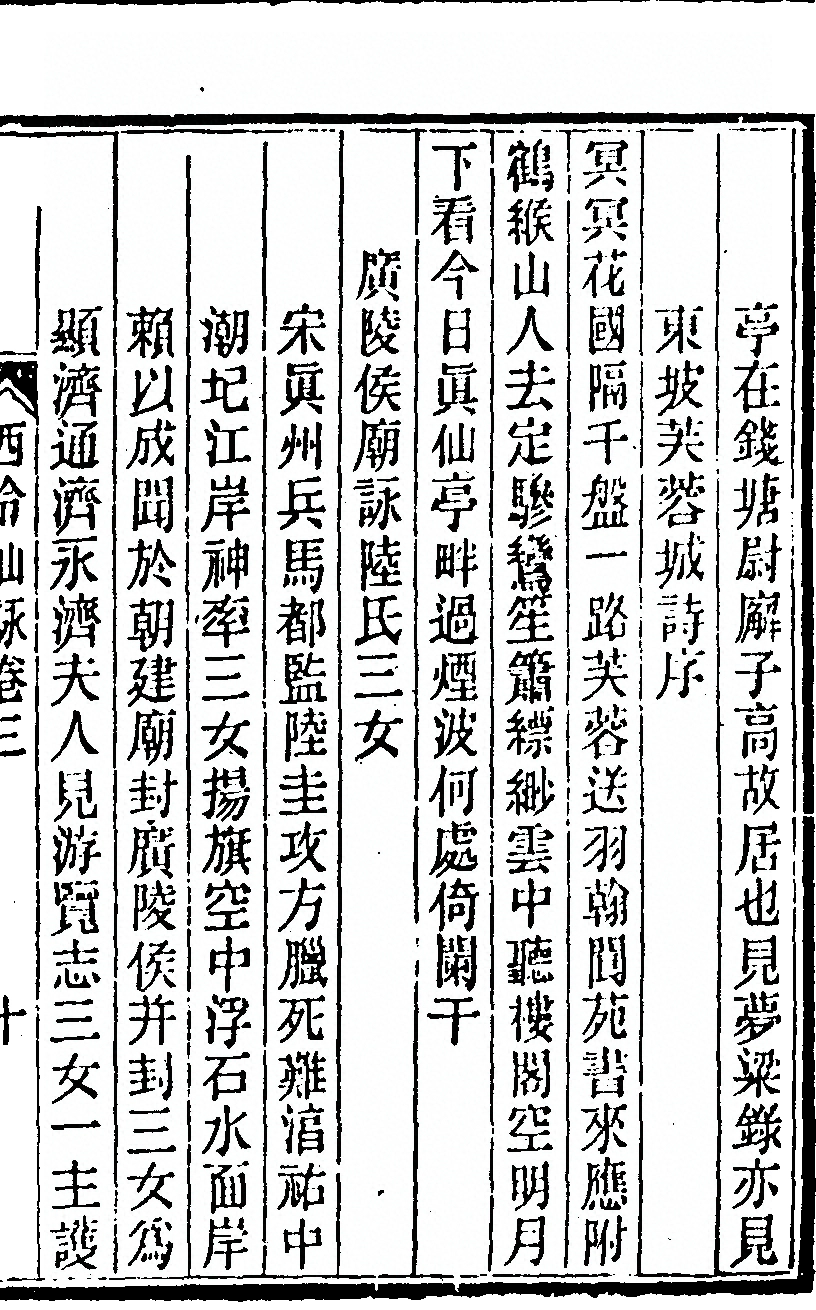 亭在錢塘尉廨子高故居也見夢粱錄亦見
東坡芙蓉城詩序
冥冥花國隔千盤一路芙蓉送羽翰閬苑書來應附
鶴緱山人去定驂鸞笙簫縹緲雲中聽樓閣空明月
下看今日眞仙亭畔過煙波何處倚闌干
廣陵侯廟詠陸氏三女
宋眞州兵馬都監陸圭攻方臘死難湻祐中
潮圮江岸神率三女揚旗空中浮石水面岸
賴以成聞於朝建廟封廣陵侯并封三女爲
顯濟通濟永濟夫人見游覽志三女一主護
西泠仙詠卷三 十